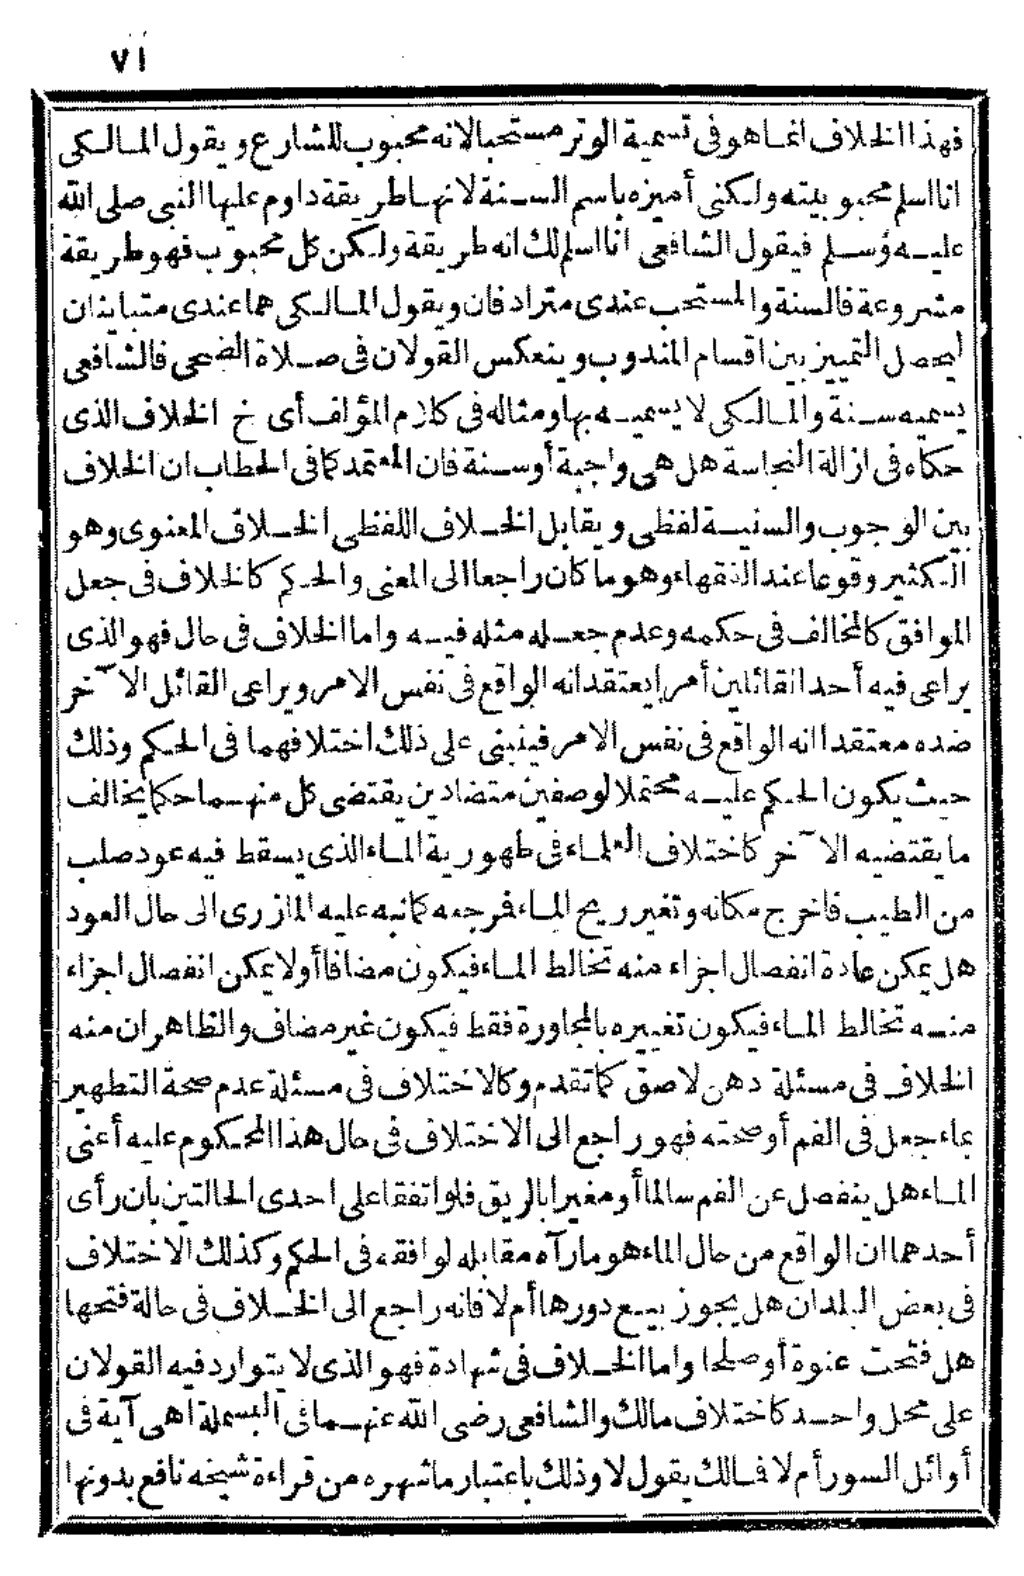 ٧١
فهذا الخلاف انما هو فى تسمية الوتر مستحبا لانه محبوب للشارع ويقول المالكى
انا اسلم محبوبيته ولكنى أميزه باسم السنة لانها طريقة داوم عليها النبى صلى الله
عليه وسلم فيقول الشافعى انا اسلم لك انه طريقة ولكن كل محبوب فهو طريقة
مشروعة فالسنة والمستحب عندى مترادفان ويقول المالكى هما عندى متباينان
ليحصل التمييز بين اقسام المندوب وينعكس القولان فى صلاة الضحى فالشافعى
يسميه سنة والمالكى لا يسميه بها ومثاله فى كلام المؤلف أى خ الخلاف الذى
حكاه فى ازالة النجاسة هل هى واجبة أو سنة فان المعتمد كما فى الحطاب ان الخلاف
بين الوجوب والسنية لفظى ويقابل الخلاف اللفظى الخلاف المعنوى وهو
الكثير وقوعا عند الفقهاء وهو ما كان راجعا الى المعنى والحكم كالخلاف فى جعل
الموافق كالمخالف فى حكمه وعدم جعله مثله فيه واما الخلاف فى حال فهو الذى
يراعى فيه أحد القائلين أمرا يعتقد انه الواقع فى نفس الامر ويراعى القائل الآخر
ضده معتقدا انه الواقع فى نفس الامر فينبنى على ذلك اختلافهما فى الحكم وذلك
حيث يكون الحكم عليه محتملا لوصفين متضادين يقتضى كل منهما حكما يخالف
ما يقتضيه الآخر كاختلاف العلماء فى طهورية الماء الذى يسقط فيه عود صلب
من الطيب فاخرج مكانه وتغير ريح الماء فمرجعه كما نبه عليه المازرى الى حال العود
هل يمكن عادة انفصال اجزاء منه تخالط الماء فيكون مضافا أو لا يمكن انفصال اجزاء
منه تخالط الماء فيكون تغييره بالمجاورة فقط فيكون غير مضاف والظاهر ان منه
الخلاف فى مسئلة دهن لاصق كما تقدم وكالاختلاف فى مسئلة عدم صحة التطهير
بماء جعل فى الفم أو صحته فهو راجع الى الاختلاف فى حال هذا المحكوم عليه أعنى
الماء هل ينفصل عن الفم سالما أو مغيرا بالريق فلو اتفقا على احدى الحالتين بان رأى
أحدهما ان الواقع من حال الماء هو ما رآه مقابله لوافقه فى الحكم وكذلك الاختلاف
فى بعض البلدان هل يجوز بيع دورها أم لا فانه راجع الى الخلاف فى حالة فتحها
هل فتحت عنوة أو صلحا واما الخلاف فى شهادة فهو الذى لا يتوارد فيه القولان
على محل واحد كاختلاف مالك والشافعى رضى الله عنهما فى البسملة اهى آية فى
أوائل السور أم لا فمالك يقول لا وذلك باعتبار ما شهره من قراءة شيخه نافع بدونها